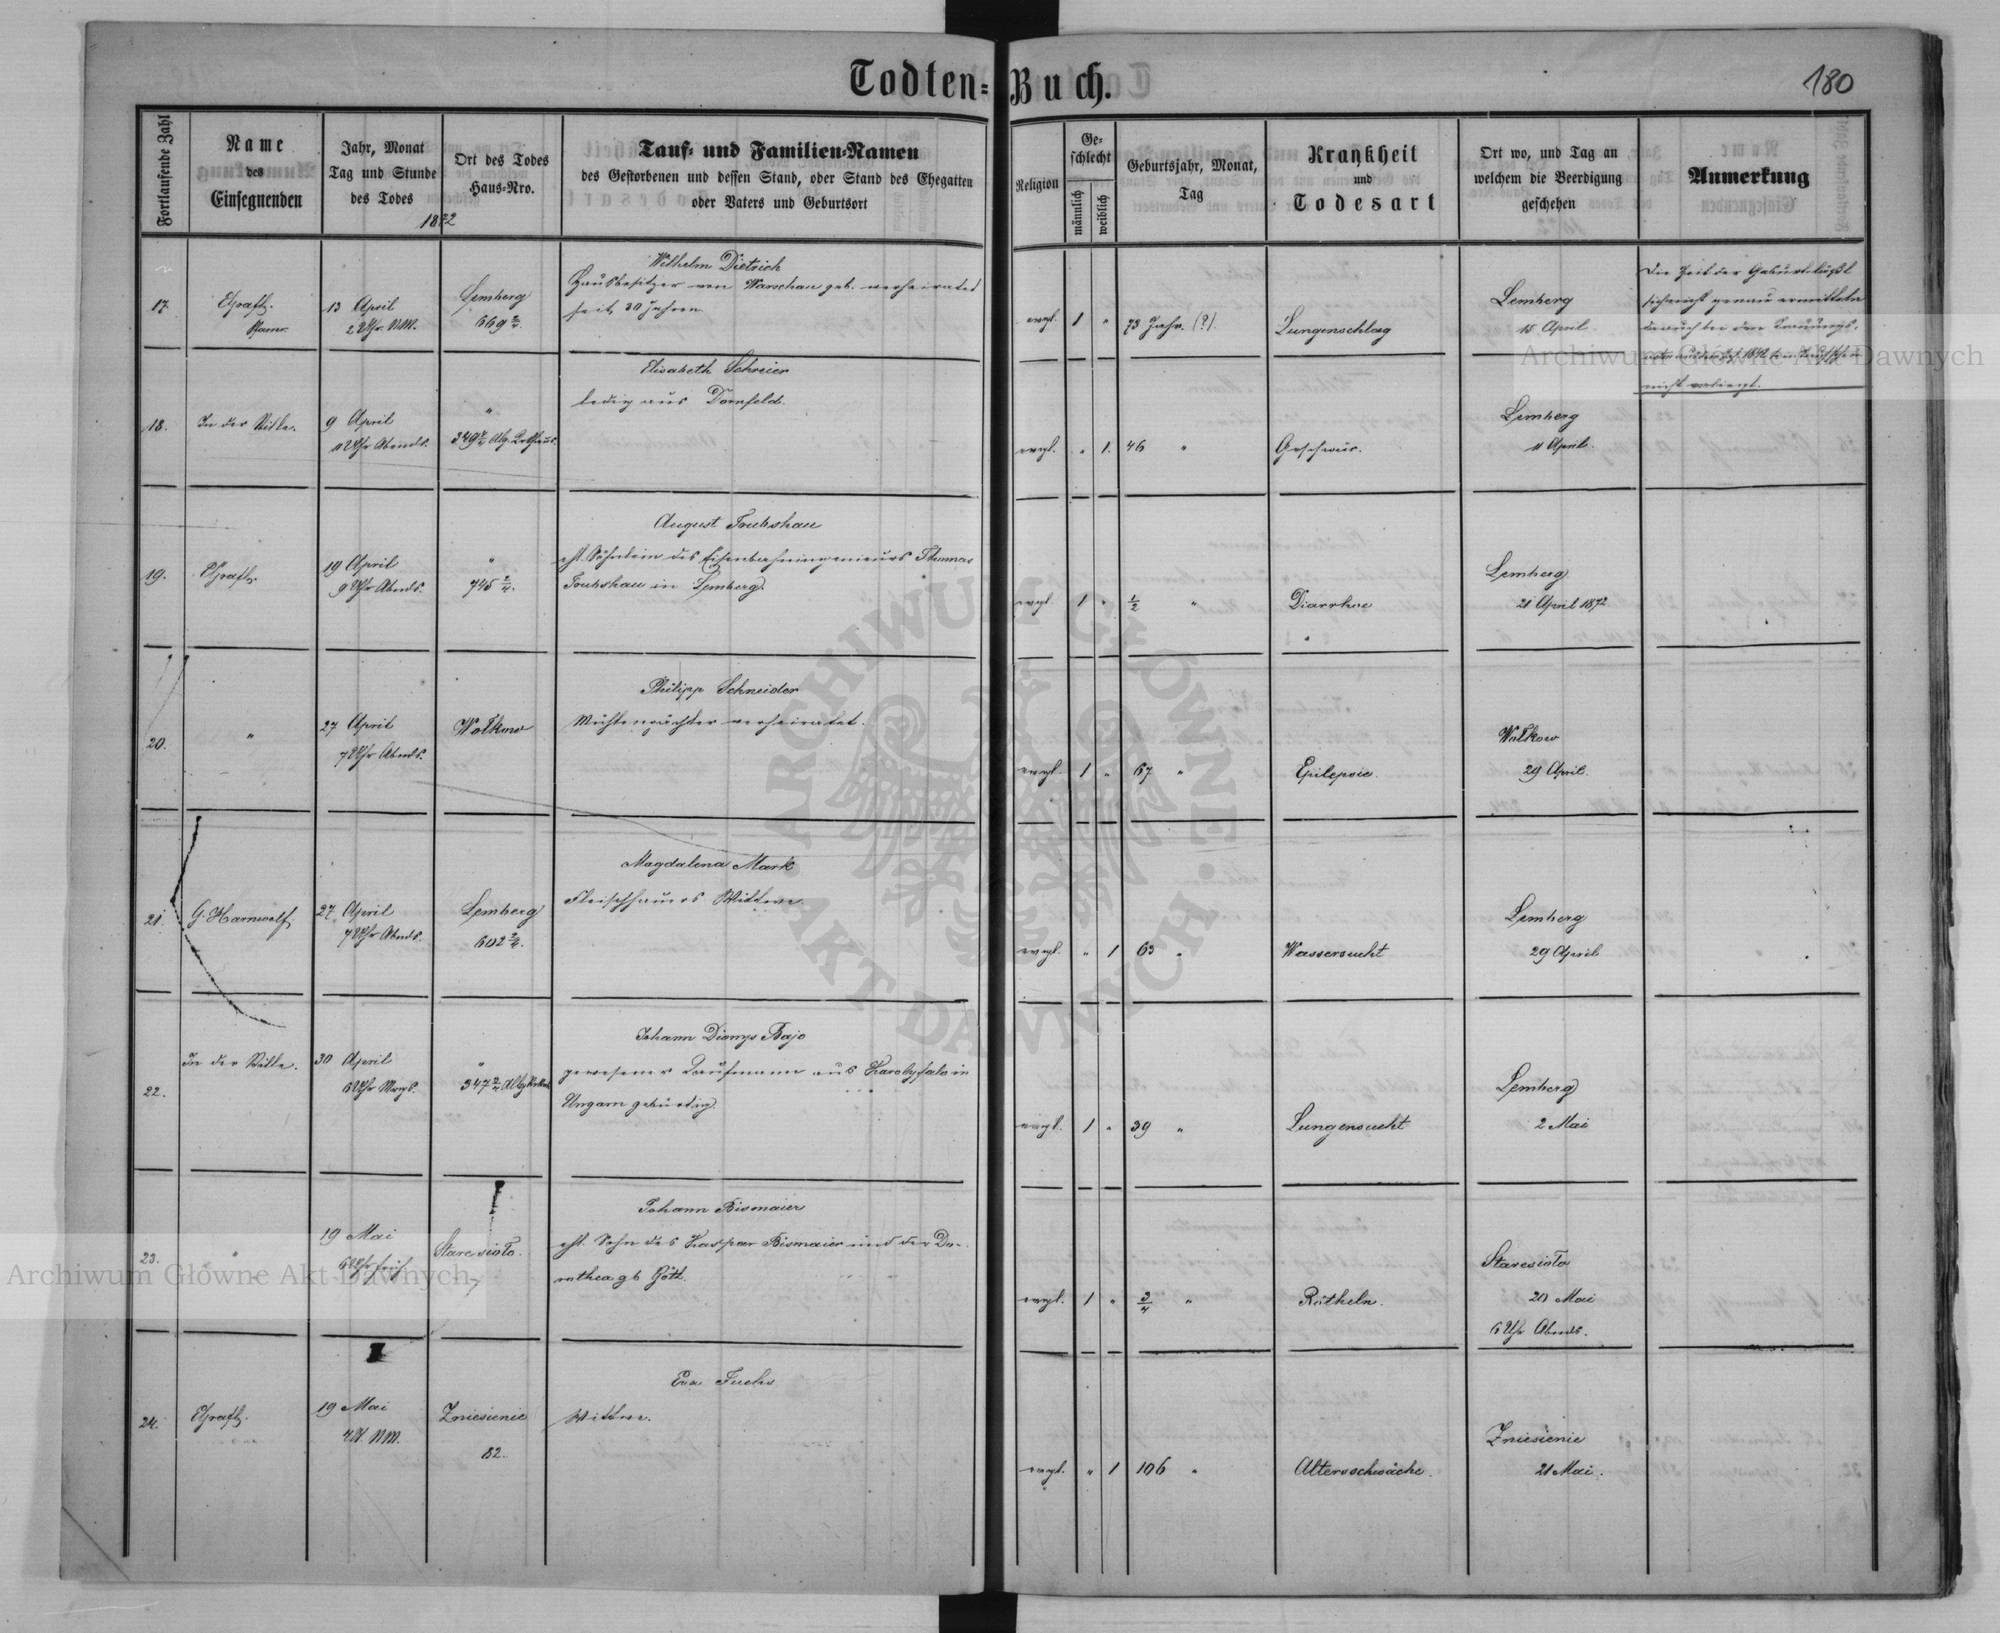 Todten-Buch.
180
Fortlaufende Zahl
Name des Einsegnenden
Jahr, Monat Tag und Stunde des Todes
1872
Ort des Todes Haus-Nro.
Tauf- und Familien-Namen
des Gestorbenen und dessen Stand, oder Stand des Ehegatten
oder Vaters und Geburtsort
Religion
Geschlecht
männlich
weiblich
Geburtsjahr, Monat, Tag
Krankheit und Todesart
Ort wo, und Tag an welchem die Beerdigung geschehen
Anmerkung
17.
Pfarrer.
13 April
2 Uhr NM.
Lemberg
669 2/4.
Wilhelm Dietrich
Hausbesitzer von Warschau geb. verheiratet
seit 30 Jahren
evgl.
1
"
73 Jahr. (?).
Lungenschlag
Lemberg
15 April.
Die Zeit der Geburt läßt
sich nicht genau ermitteln
nicht vorliegt.
18.
In der Stille.
9 April
11 Uhr Abends.
"
349 2/4 Allg.
Elisabeth Schreier
ledig aus Dornfeld.
evgl.
"
1.
46 "
Geschwür.
Lemberg
11 April.
19.
19 April
9 Uhr Abends.
"
745 2/4.
August Truhshau
ehl. Söhnlein des Eisenbahningenieurs Thomas
Truhshau in Lemberg.
evgl.
1
"
1/2 "
Diarrhoe
Lemberg
21 April 1872
20.
"
27 April
7 Uhr Abends.
Wolkow
Philipp Schneider
Mühlenpächter verheiratet.
evgl.
1
"
67 "
Epilepsie.
Wolkow
29 April.
21.
G. Harnwolf
27 April
7 Uhr Abends.
Lemberg
602 2/4.
Magdalena Mark
Fleischhauers Wittwe.
evgl.
"
1
63 "
Wassersucht
Lemberg
29 April
22.
In der Stille.
30 April
6 Uhr Mrgs.
"
347 2/4 Allg.
Johann Dionys Bajo
gewesener Kaufmann aus Karolyfalo in
Ungarn gebürtig.
evgl.
1
"
39 "
Lungensucht
Lemberg
2 Mai
23.
"
19 Mai
6 Uhr früh
Staresioło.
Johann Bismaier
ehl. Sohn des Kaspar Bismaier und der Do-
rothea gb Gött.
evgl.
1
"
3/4 "
Rötheln.
Staresioło
20 Mai
6 Uhr Abends.
24.
19 Mai
4 U NM.
Zniesienie
82.
Eva Fuchs
Wittwe.
evgl.
"
1
106 "
Altersschwäche.
Zniesienie
21 Mai.
Archiwum Główne Akt Dawnych
Archiwum Główne Akt Dawnych
ARCHIWUM GŁÓWNE • AKT DAWNYCH •